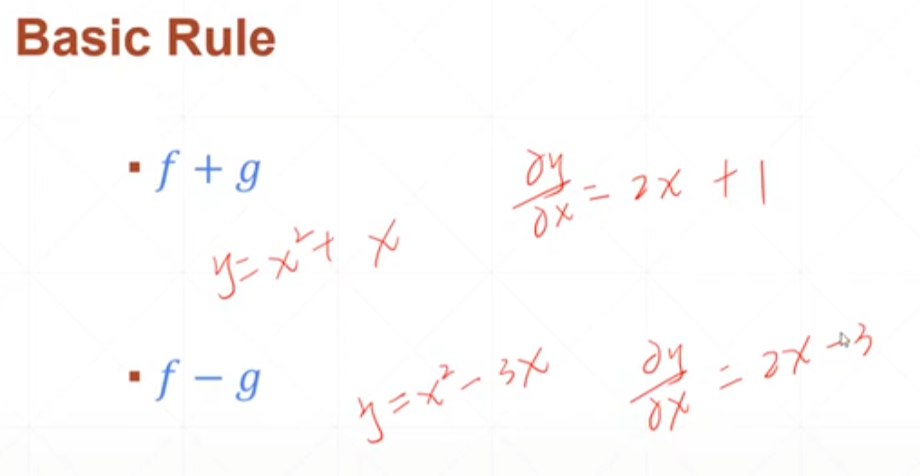 Basic Rule
▪ f + g
∂y/∂x = 2x + 1
y = x² + x
▪ f − g
y = x² − 3x
∂y/∂x = 2x − 3